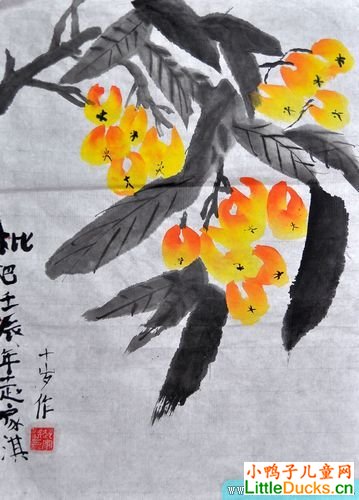 枇巴壬辰年赵家淇
十岁作
小鸭子儿童网
LittleDucks.cn
www.